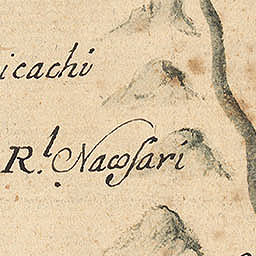 icachi
R.l Nacosari